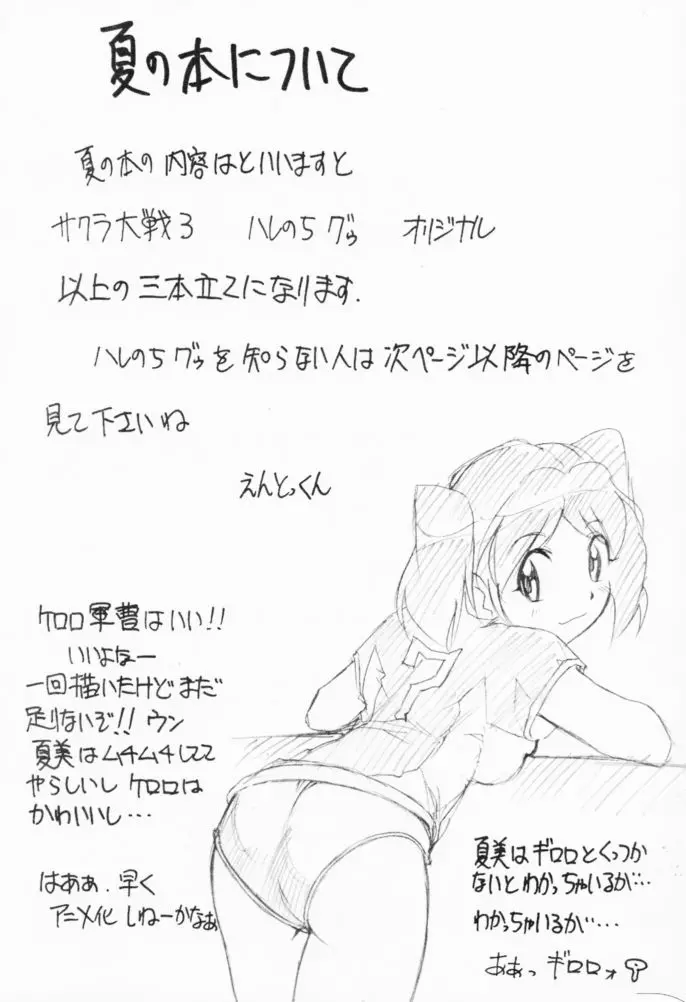 夏の本について
夏の本の内容はといいますと
サクラ大戦3 ハレのちグゥ オリジナル
以上の三本立てになります.
ハレのちグゥを知らない人は次ページ以降のページを
見て下さいね
えんとっくん
ケロロ軍曹はいい!!
いいよなー
一回描いたけどまだ
足りないぞ!!ウン
夏美はムチムチしてて
やらしいし ケロロは
かわいいし…
はあぁ.早く
アニメ化しねーかなぁ
夏美はギロロとくっつか
ないとわかっちゃいるが…
わかっちゃいるが…
ああっ ギロロォ